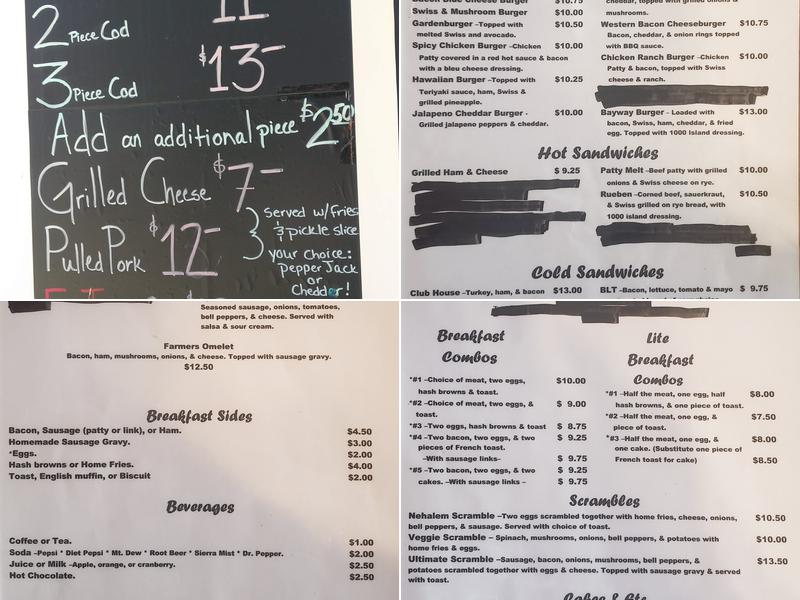 2 Piece Cod 11
3 Piece Cod $13-
Add an additional piece $2.50
Grilled Cheese $7-
Pulled Pork $12-
Served w/fries
& pickle slice
your choice:
pepper Jack
or
Cheddar!
Swiss & Mushroom Burger $10.00
Gardenburger -Topped with $10.50
melted Swiss and avocado.
Spicy Chicken Burger -Chicken $10.00
Patty covered in a red hot sauce & bacon
with a bleu cheese dressing.
Hawaiian Burger -Topped with $10.25
Teriyaki sauce, ham, Swiss &
grilled pineapple.
Jalapeno Cheddar Burger - $10.00
Grilled jalapeno peppers & cheddar.
mushrooms.
Western Bacon Cheeseburger $10.75
Bacon, cheddar, & onion rings topped
with BBQ sauce.
Chicken Ranch Burger -Chicken $10.00
Patty & bacon, topped with Swiss
cheese & ranch.
Bayway Burger - Loaded with $13.00
bacon, Swiss, ham, cheddar, & fried
egg. Topped with 1000 Island dressing.
Hot Sandwiches
Grilled Ham & Cheese $ 9.25
Patty Melt -Beef patty with grilled $10.00
onions & Swiss cheese on rye.
Rueben -Corned beef, sauerkraut, $10.50
& Swiss grilled on rye bread, with
1000 island dressing.
Cold Sandwiches
Club House -Turkey, ham, & bacon $13.00
BLT -Bacon, lettuce, tomato & mayo $ 9.75
Seasoned sausage, onions, tomatoes,
bell peppers, & cheese. Served with
salsa & sour cream.
Farmers Omelet
Bacon, ham, mushrooms, onions, & cheese. Topped with sausage gravy.
$12.50
Breakfast Sides
Bacon, Sausage (patty or link), or Ham. $4.50
Homemade Sausage Gravy. $3.00
*Eggs. $2.00
Hash browns or Home Fries. $4.00
Toast, English muffin, or Biscuit $2.00
Beverages
Coffee or Tea. $1.00
Soda -Pepsi * Diet Pepsi * Mt. Dew * Root Beer * Sierra Mist * Dr. Pepper. $2.00
Juice or Milk -Apple, orange, or cranberry. $2.50
Hot Chocolate. $2.50
Breakfast
Combos
*#1 -Choice of meat, two eggs, $10.00
hash browns & toast.
*#2 -Choice of meat, two eggs, & $ 9.00
toast.
*#3 -Two eggs, hash browns & toast $ 8.75
*#4 -Two bacon, two eggs, & two $ 9.25
pieces of French toast.
-With sausage links- $ 9.75
*#5 -Two bacon, two eggs, & two $ 9.25
cakes. -With sausage links - $ 9.75
Lite
Breakfast
Combos
*#1 -Half the meat, one egg, half $8.00
hash browns, & one piece of toast.
*#2 -Half the meat, one egg, & $7.50
piece of toast.
*#3 -Half the meat, one egg, & $8.00
one cake. (Substitute one piece of
French toast for cake) $8.50
Scrambles
Nehalem Scramble -Two eggs scrambled together with home fries, cheese, onions, $10.50
bell peppers, & sausage. Served with choice of toast.
Veggie Scramble - Spinach, mushrooms, onions, bell peppers, & potatoes with $10.00
home fries & eggs.
Ultimate Scramble -Sausage, bacon, onions, mushrooms, bell peppers, & $13.50
potatoes scrambled together with eggs & cheese. Topped with sausage gravy & served
with toast.